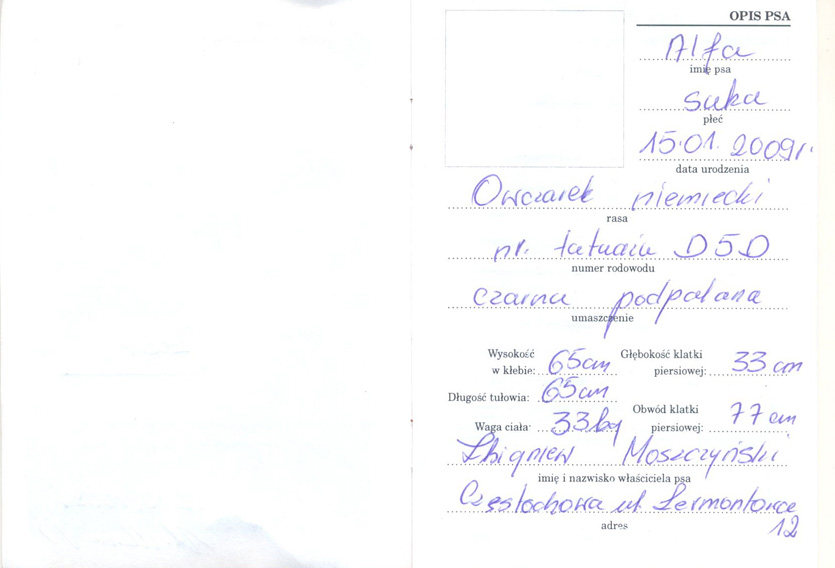 OPIS PSA
Alfa
imię psa
suka
płeć
15.01.2009r.
data urodzenia
Owczarek niemiecki
rasa
nr. tatuażu D5D
numer rodowodu
czarna podpalana
umaszczenie
Wysokość w kłębie: 65cm Głębokość klatki piersiowej: 33 cm
Długość tułowia: 65cm
Waga ciała: 33kg Obwód klatki piersiowej: 77 cm
Zbigniew Moszczyński
imię i nazwisko właściciela psa
Częstochowa ul. Lermontowa
12
adres